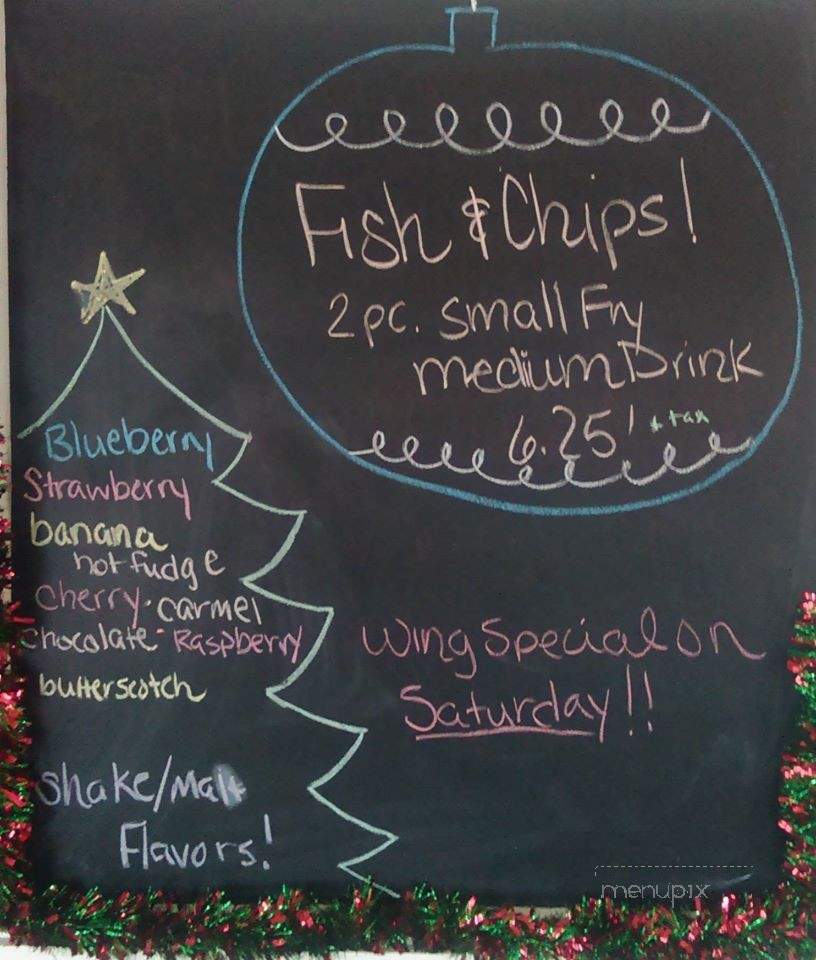 Fish & Chips!
2 pc. small Fry
medium Drink
6.25! + tax
Blueberry
Strawberry
banana
hot fudge
cherry · carmel
chocolate · Raspberry
butterscotch
Shake/Malt
Flavors!
Wing Special on
Saturday!!
menupix